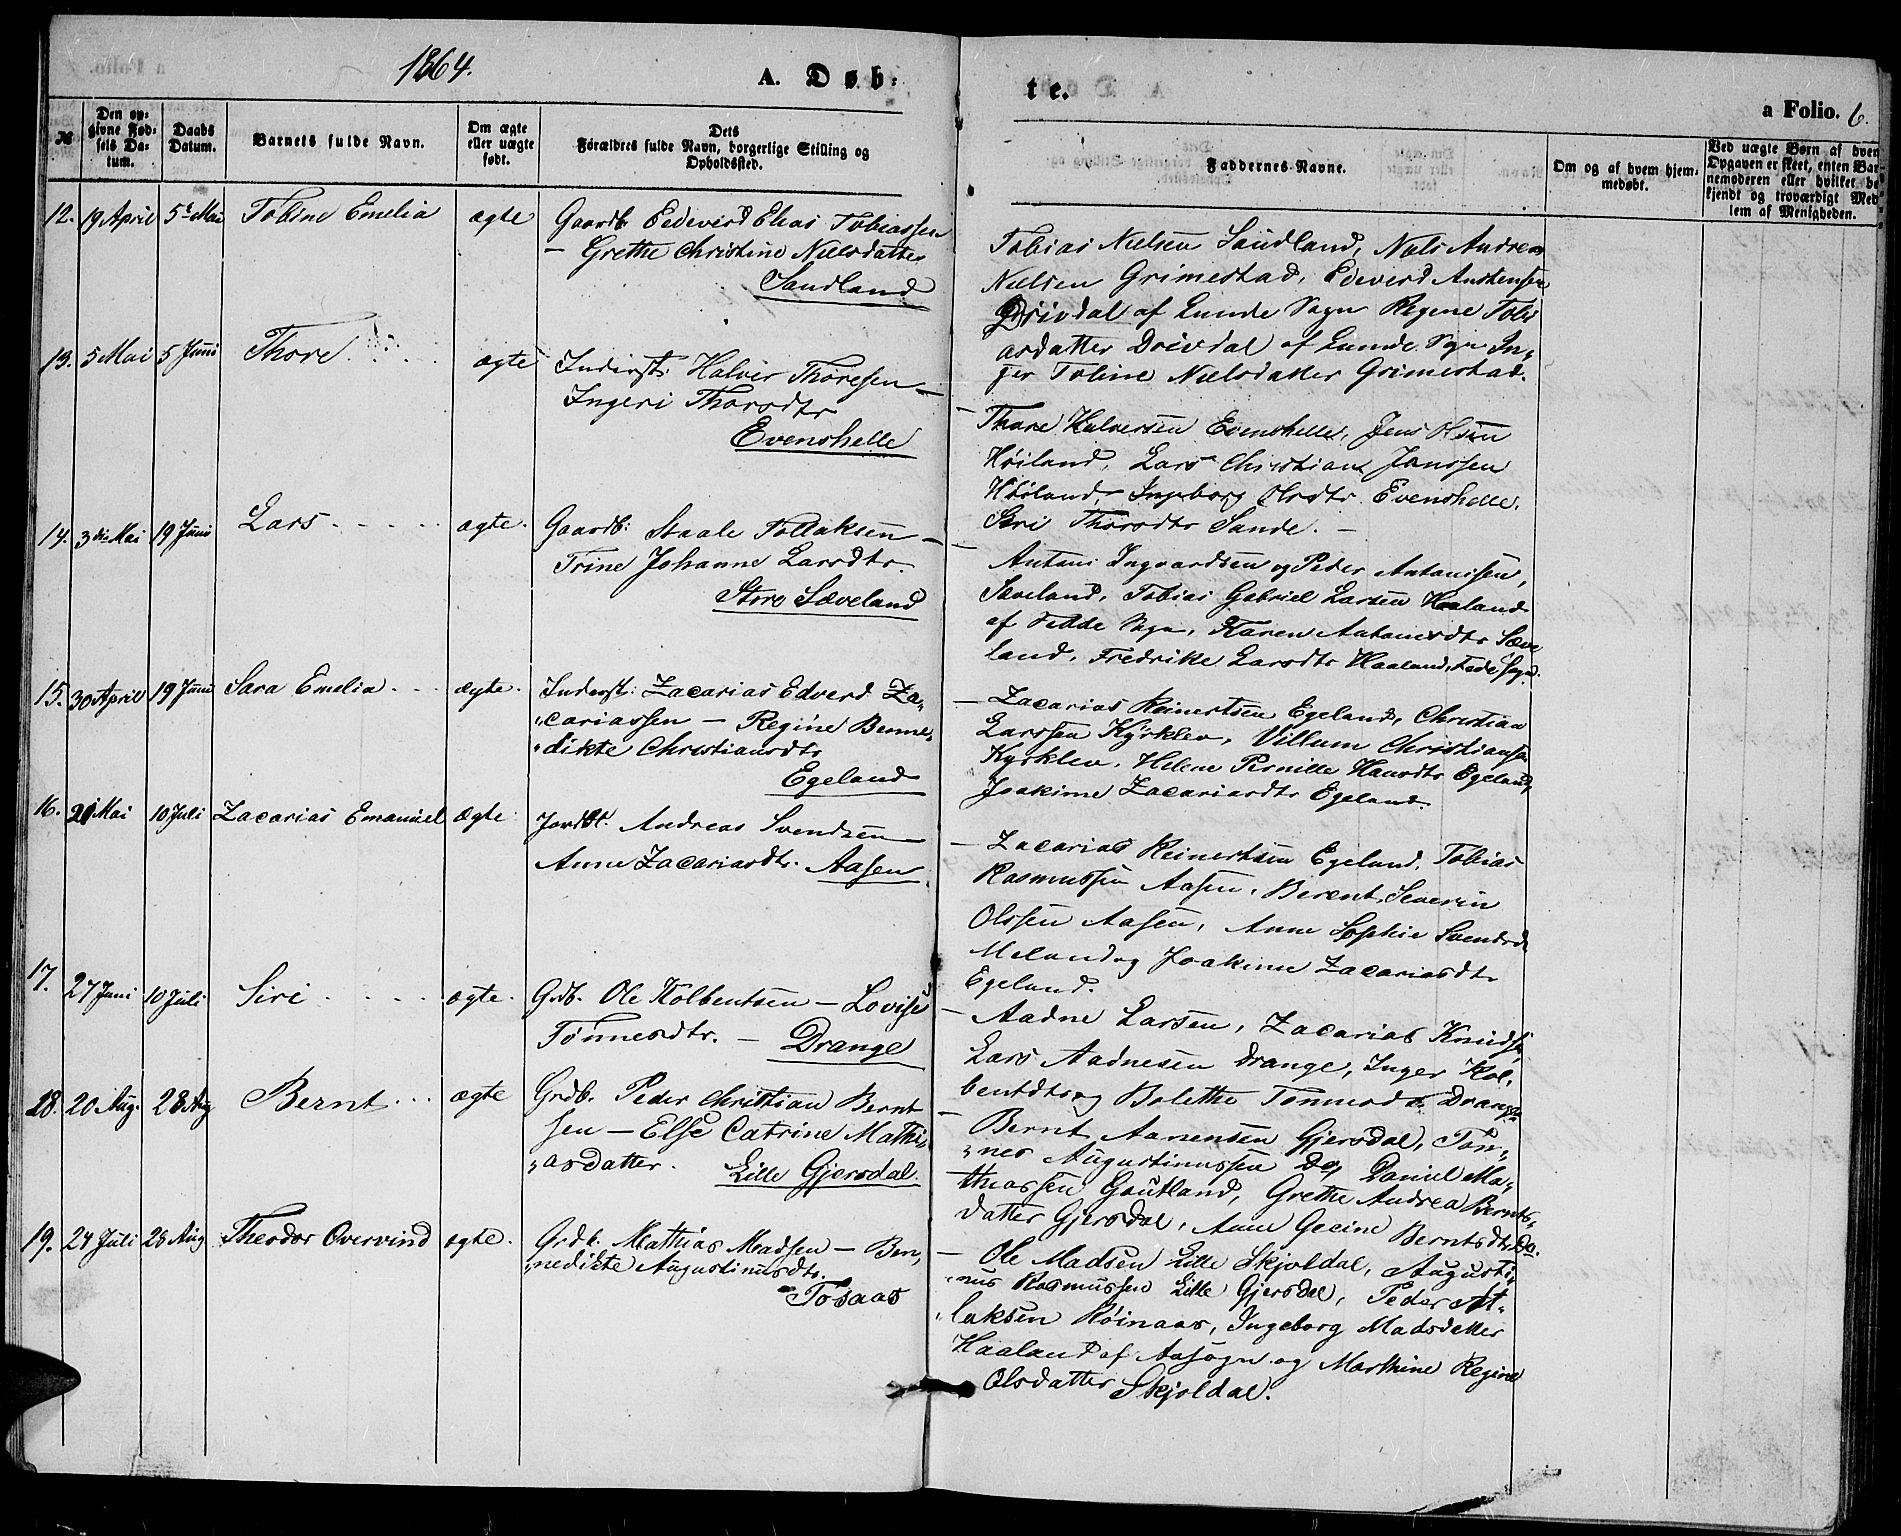 1864.
A. Døb-
te.
a Folio. 6.
№
Den op-
givne Fød-
sels Da-
tum.
Daabs
Datum.
Barnets fulde Navn.
Om ægte
eller uægte
født.
Dets
Forældres fulde Navn, borgerlige Stilling og
Opholdssted.
Faddernes Navne.
Om og af hvem hjem-
medøbt.
Ved uægte Børn af hvem
Opgaven er skeet, enten Bar-
nemoderen eller hvilket be-
kjendt og troværdigt Med-
lem af Menigheden.
12. 19 April 5te Mai Tobine Emelia ægte Gaardb. Eedeverd Elias Tobiassen
– Grethe Christine Nielsdatter
Sandland
Tobias Nielsen Sandland, Niels Andreas
Nielsen Grimestad, Edeverd Anstensen
Drivdal af Lunde Sogn Regine Tobi
asdatter Drivdal af Lunde Sogn In-
ger Toline Nielsdatter Grimestad.
13. 5 Mai 5 Juni Thore ægte Inderst: Halvor Thoresen –
Ingeri Thorsdtr
Evenshelle
– Thore Halversen Evenshelle, Jens Olsen
Høiland, Lars Christian Jonssen
Høiland, Ingeborg Olsdtr Evenshelle,
Siri Thorsdtr Sande. –
14. 3die Mai 19 Juni Lars ægte. Gaardb: Staale Tollaksen –
Trine Johanne Larsdtr.
Store Sæveland
– Antoni Ingvardsen og Peder Antonisen,
Sæveland, Tobias Gabriel Larsen Haaland
af Fedde Sogn, Karen Antonisdtr Sæve
land, Fredrike Larsdtr Haaland, Fede Sogn.
15. 30 April 19 Juni Sara Emelia ægte. Inderst: Zacarias Edverd Za-
"cariassen – Regine Benne-
"dikte Christiansdtr
Egeland
– Zacarias Reinertsen Egeland, Christian
Larssen Kyrklev, Villum Christiansen
Kyrklev, Helene Pernille Hansdtr Egeland,
Joakime Zacariasdtr Egeland.
16. 21 Mai 10 Juli Zacarias Emanuel ægte Andreas Svendsen
Anne Zacariasdtr. Aasen
– Zacarias Reinertsen Egeland, Tobias
Rasmussen Aasen, Berent Severin
Olssen Aasen, Anne Sophie Svendsd
Meland og Joakime Zacariasdtr
Egeland.
17. 27 Juni 10 Juli Siri ægte. Grdb. Ole Kolbentsen – Lovise
Tønnesdtr. – Drange
– Aadne Larsen, Zacarias Knudsen
Lars Aadnesen Drange, Inger Kol-
bentdtr og Bolette Tønnesd Drange
18. 20 Aug. 28 Aug Bernt ægte Grdb. Peder Christian Bernt
sen – Else Catrine Mathi-
"asdatter. Lille Gjersdal.
– Bernt Aanensen Gjersdal, Tøn-
"nes Augustinussen Do, Daniel Ma-
thiassen Gautland, Grethe Andrea Bernts-
datter Gjersdal, Anne Gecine Berntsdtr Do.
19. 24 Juli 28 Aug Theodor Overvind ægte. Grdb. Mathias Madsen – Ben-
"nedikte Augustinusdtr.
Tosaas
– Ole Madsen Lille Skjoldal, Augusti-
"nus Rasmussen Lille Gjersdal, Peder At-
"laksen Røinaas, Ingeborg Madsdatter
Haaland af Aasogn og Marthine Regine
Olsdatter Skjoldal.